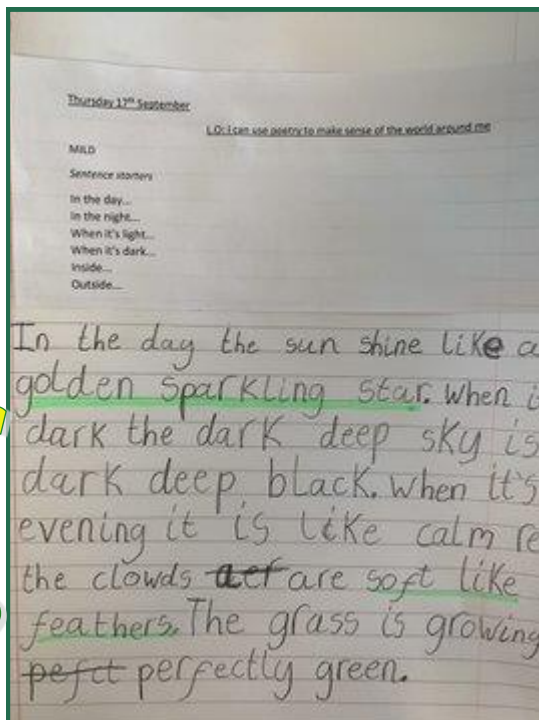 Thursday 17th September
LO: I can use poetry to make sense of the world around me
MILD
Sentence starters
In the day...
In the night...
When it's light...
When it's dark...
Inside...
Outside...
In the day the sun shine like a
golden sparkling star. When i
dark the dark deep sky is
dark deep black. When it's
evening it is like calm re
the clowds are soft like
feathers. The grass is growing
perfectly green.